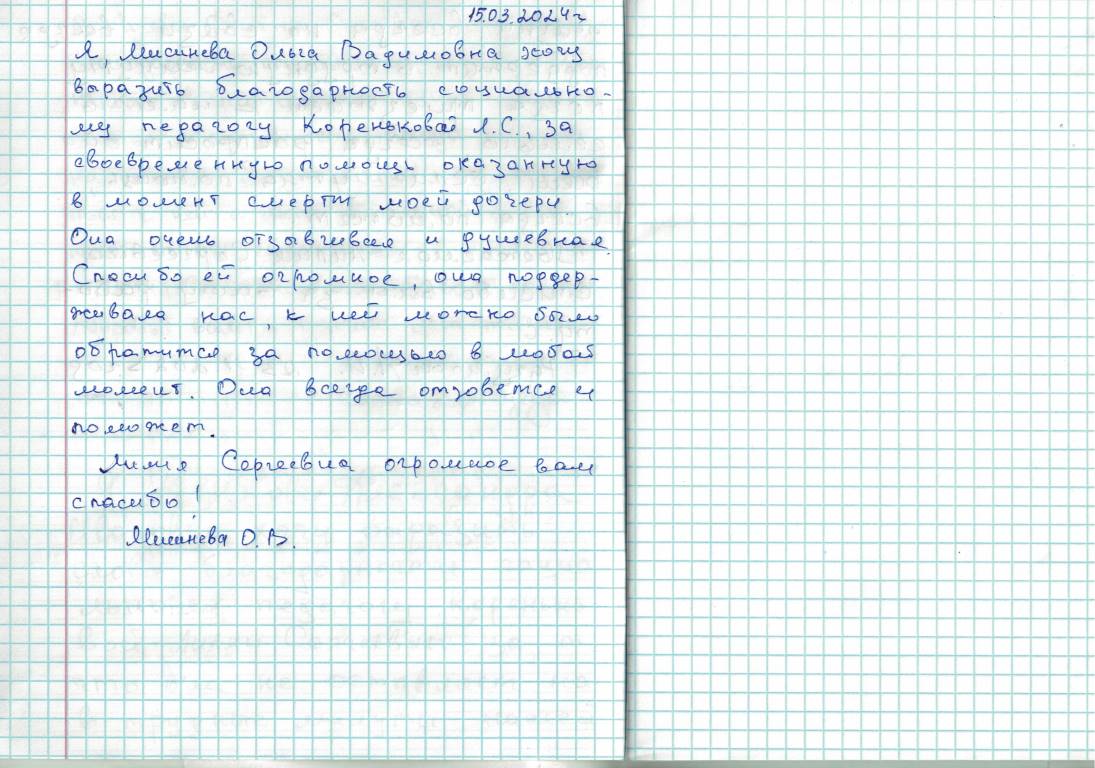 15.03.2024 г
Я, Мисинева Ольга Вадимовна хочу
выразить благодарность социально-
му педагогу Кореньковой Л.С., за
своевременную помощь оказанную
в момент смерти моей дочери.
Она очень отзывчивая и душевная.
Спасибо ей огромное, она поддер-
живала нас, к ней можно было
обратится за помощью в любой
момент. Она всегда отзовется и
поможет.
Лилия Сергеевна огромное вам
спасибо!
Мисинева О.В.